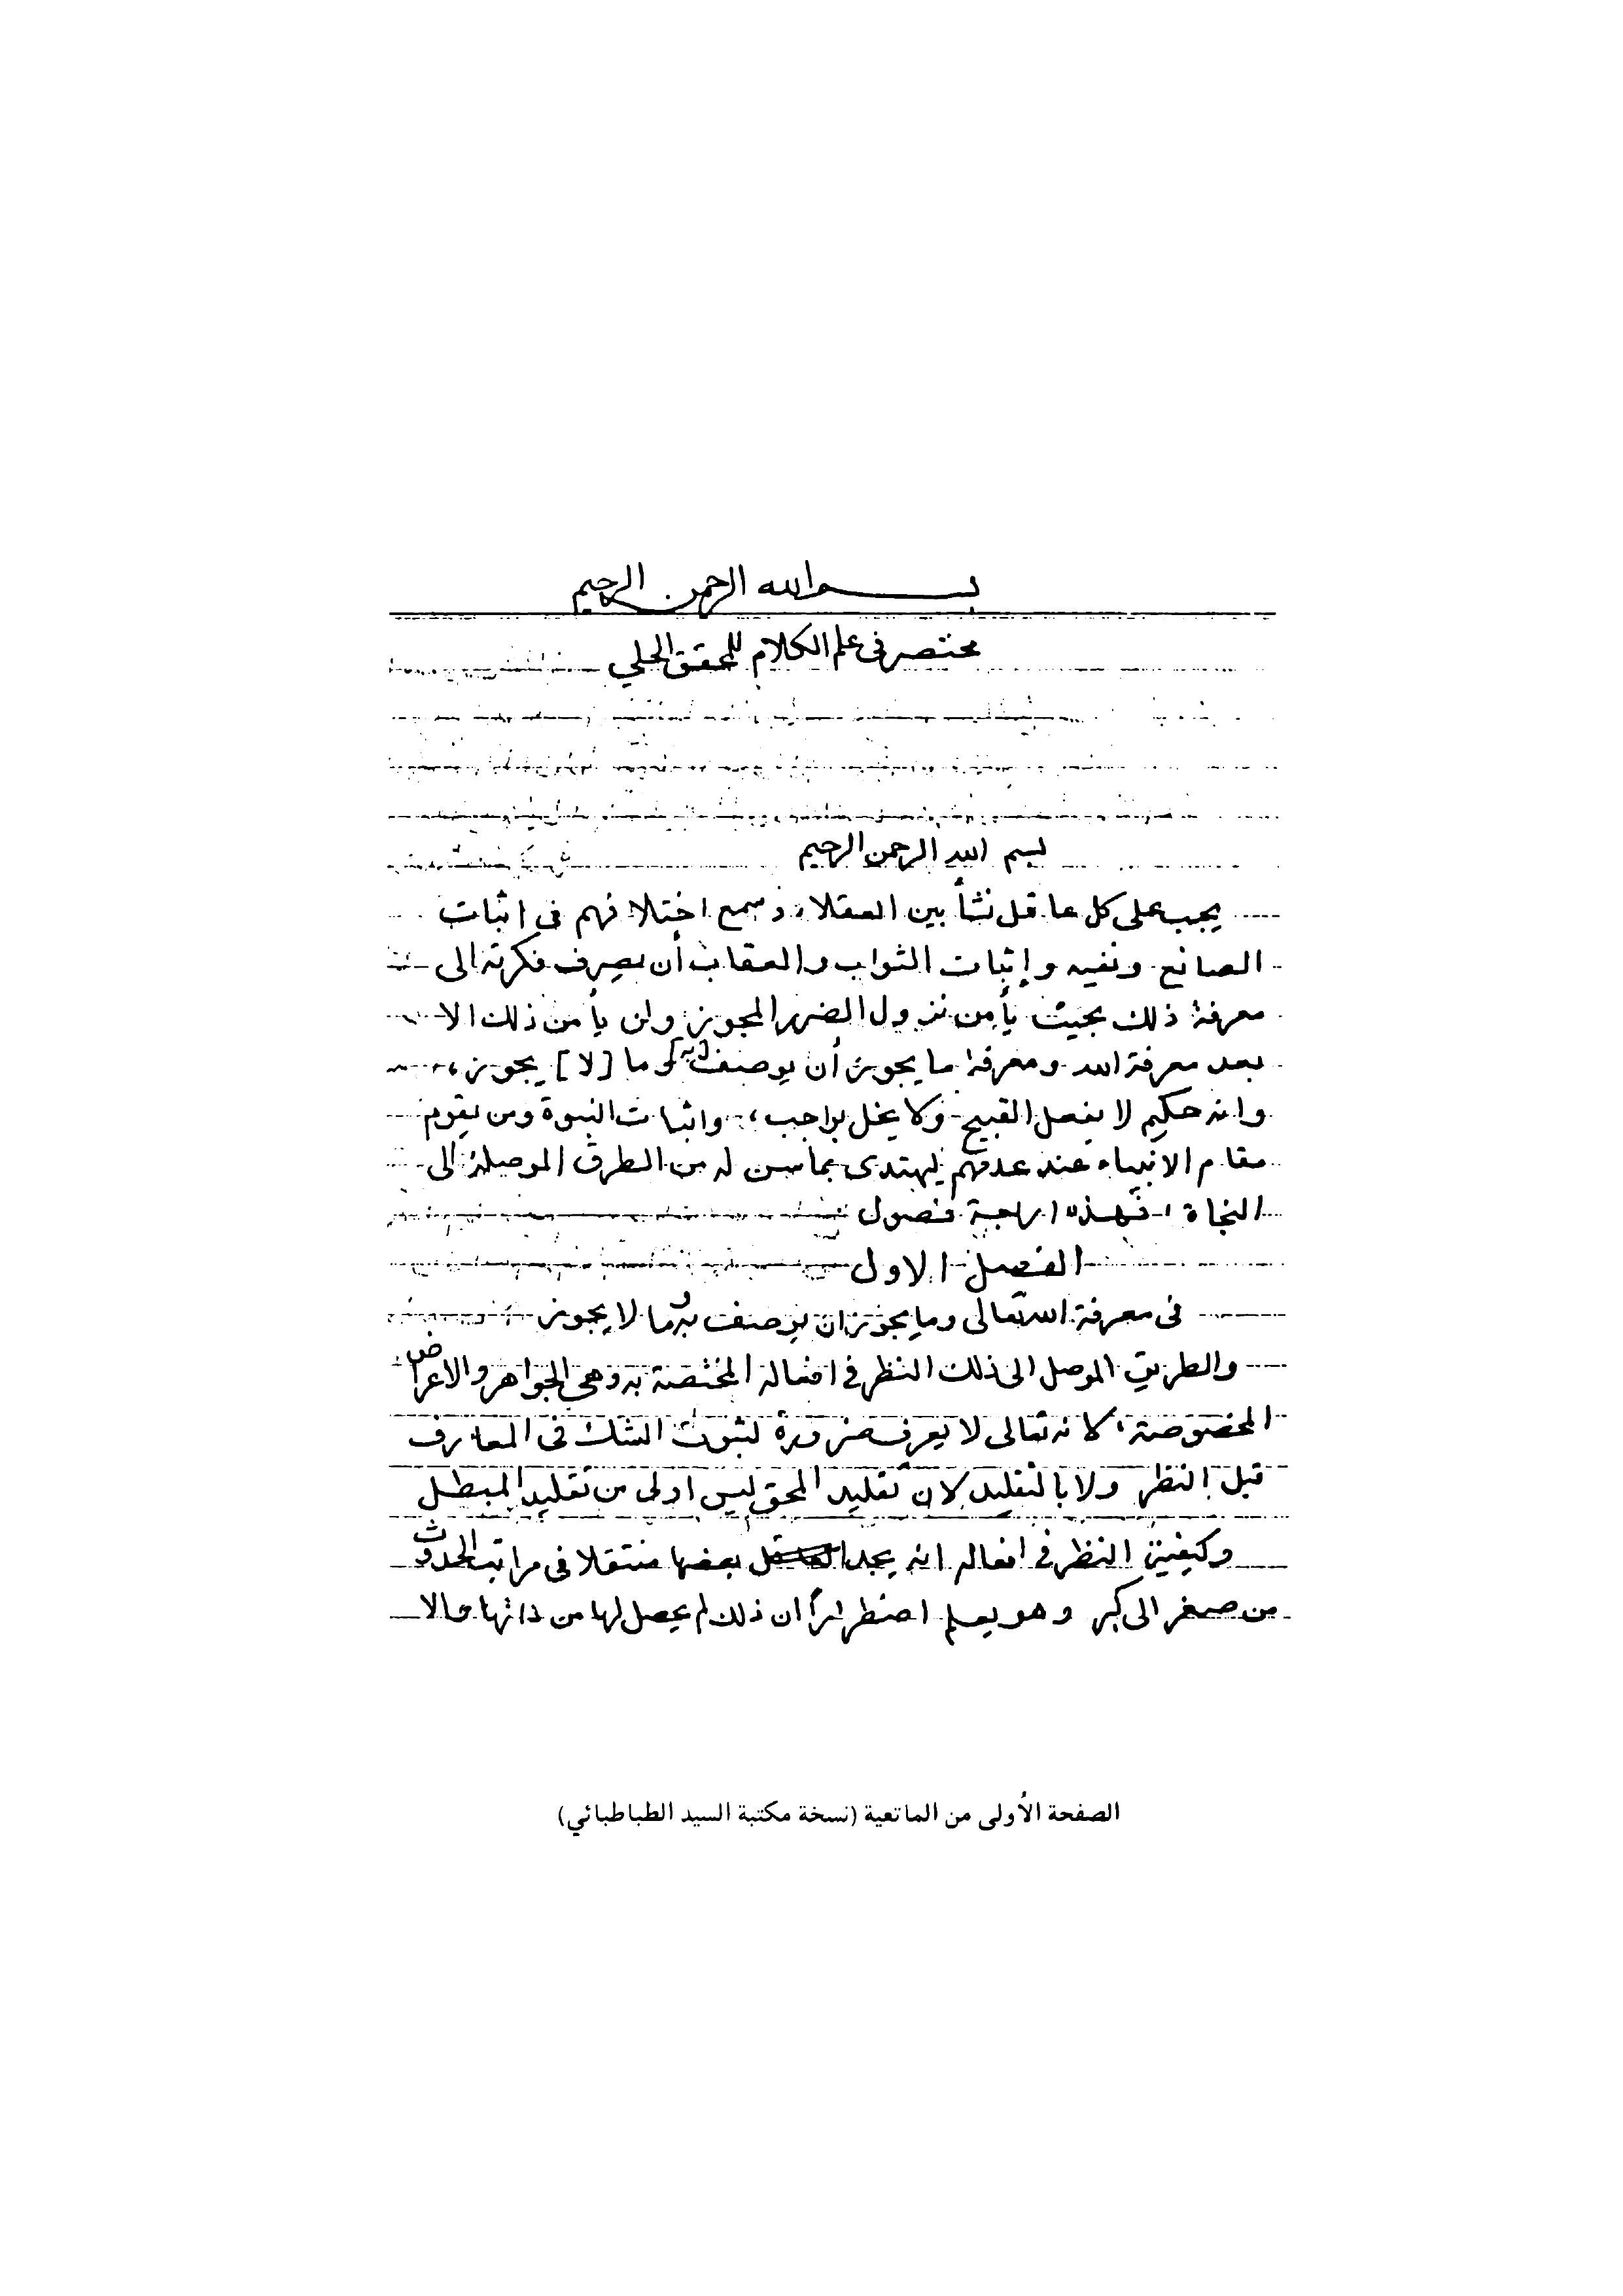 بسم الله الرحمن الرحيم
مختصر في علم الكلام للمحقق الحلي
بسم الله الرحمن الرحيم
يجب على كل عاقل نشأ بين العقلاء وسمع اختلافهم فى اثبات
الصانع ونفيه وإثبات الثواب والعقاب أن يصرف فكرته الى
معرفة ذلك بحيث يأمن نزول الضرر المجوز ولن يأمن ذلك الا
بعد معرفة الله ومعرفة ما يجوز أن يوصف [به] وما [لا] يجوز،
وانه حكيم لا يفعل القبيح ولا يخل بواجب، واثبات النبوة ومن يقوم
مقام الانبياء عند عدمهم ليهتدى بما سن له من الطرق الموصلة الى
النجاة، فهذه اربعة فصول
الفصل الاول
فى معرفة الله تعالى وما يجوز ان يوصف به وما لا يجوز
والطريق الموصل الى ذلك النظر في افعاله المختصة به وهى الجواهر والاعراض
المخصوصة، لانه تعالى لا يعرف ضرورة لثبوت الشك فى المعارف
قبل النظر ولا بالتقليد لان تقليد المحق ليس اولى من تقليد المبطل
وكيفية النظر في افعاله انه يجد العاقل بعضها منتقلا فى مراتب الحدوث
من صغر الى كبر وهو يعلم اضطراراً ان ذلك لم يحصل لها من ذاتها والا
الصفحة الأولى من الماتعية (نسخة مكتبة السيد الطباطبائي)